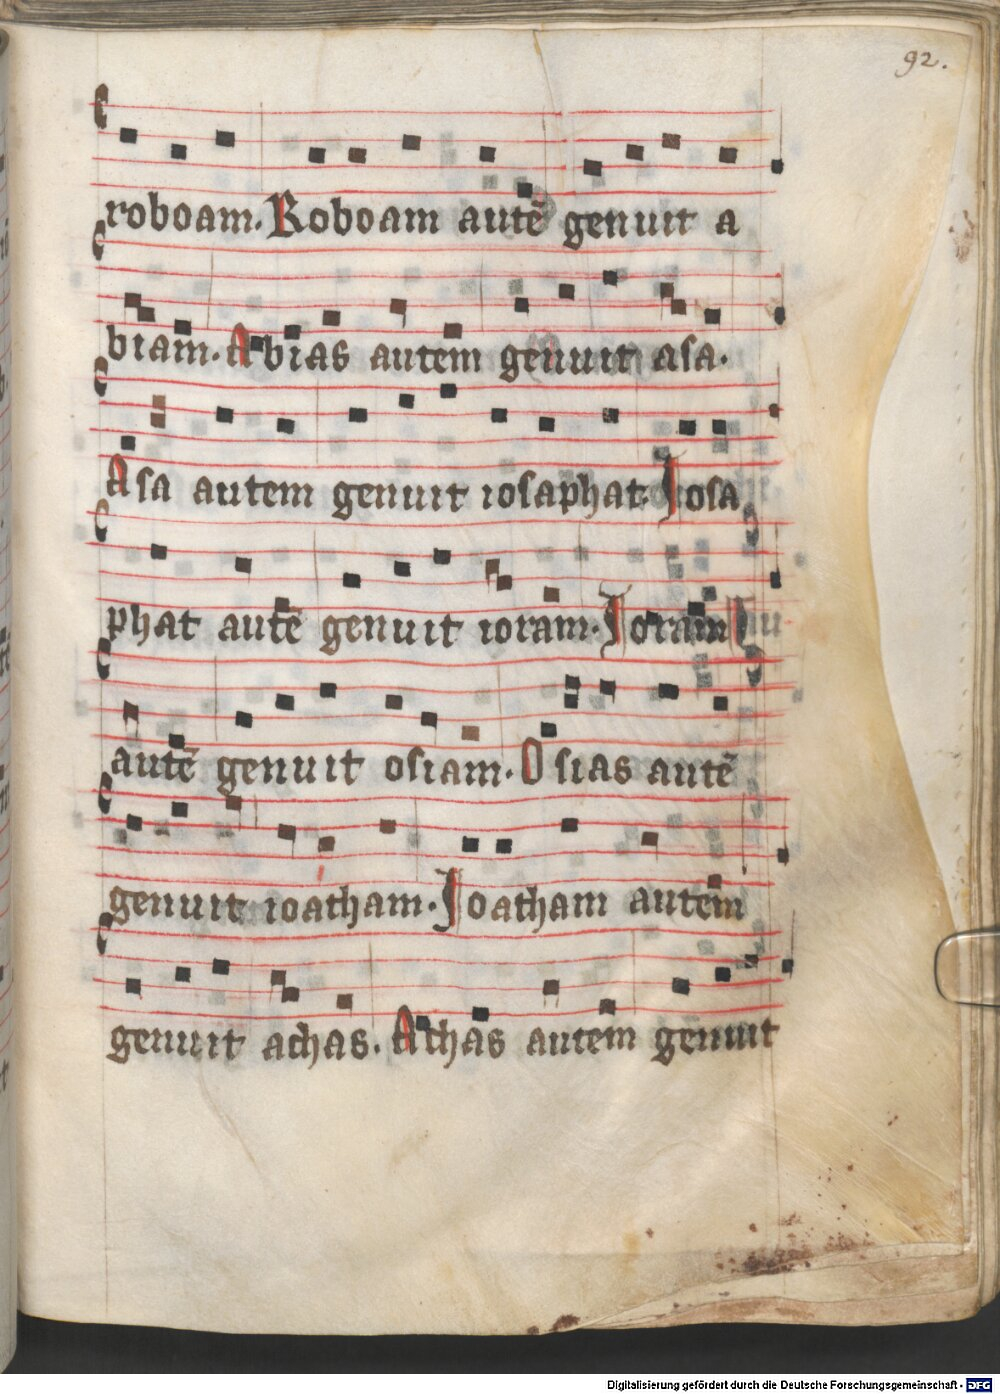 92.
roboam. Roboam autē genuit a
biam. Abias autem genuit asa.
Asa autem genuit iosaphat. Josa
phat autē genuit ioram. Joram
autē genuit osiam. Osias autē
genuit ioatham. Joatham autem
genuit achas. Achas autem genuit
Digitalisierung gefördert durch die Deutsche Forschungsgemeinschaft - DFG